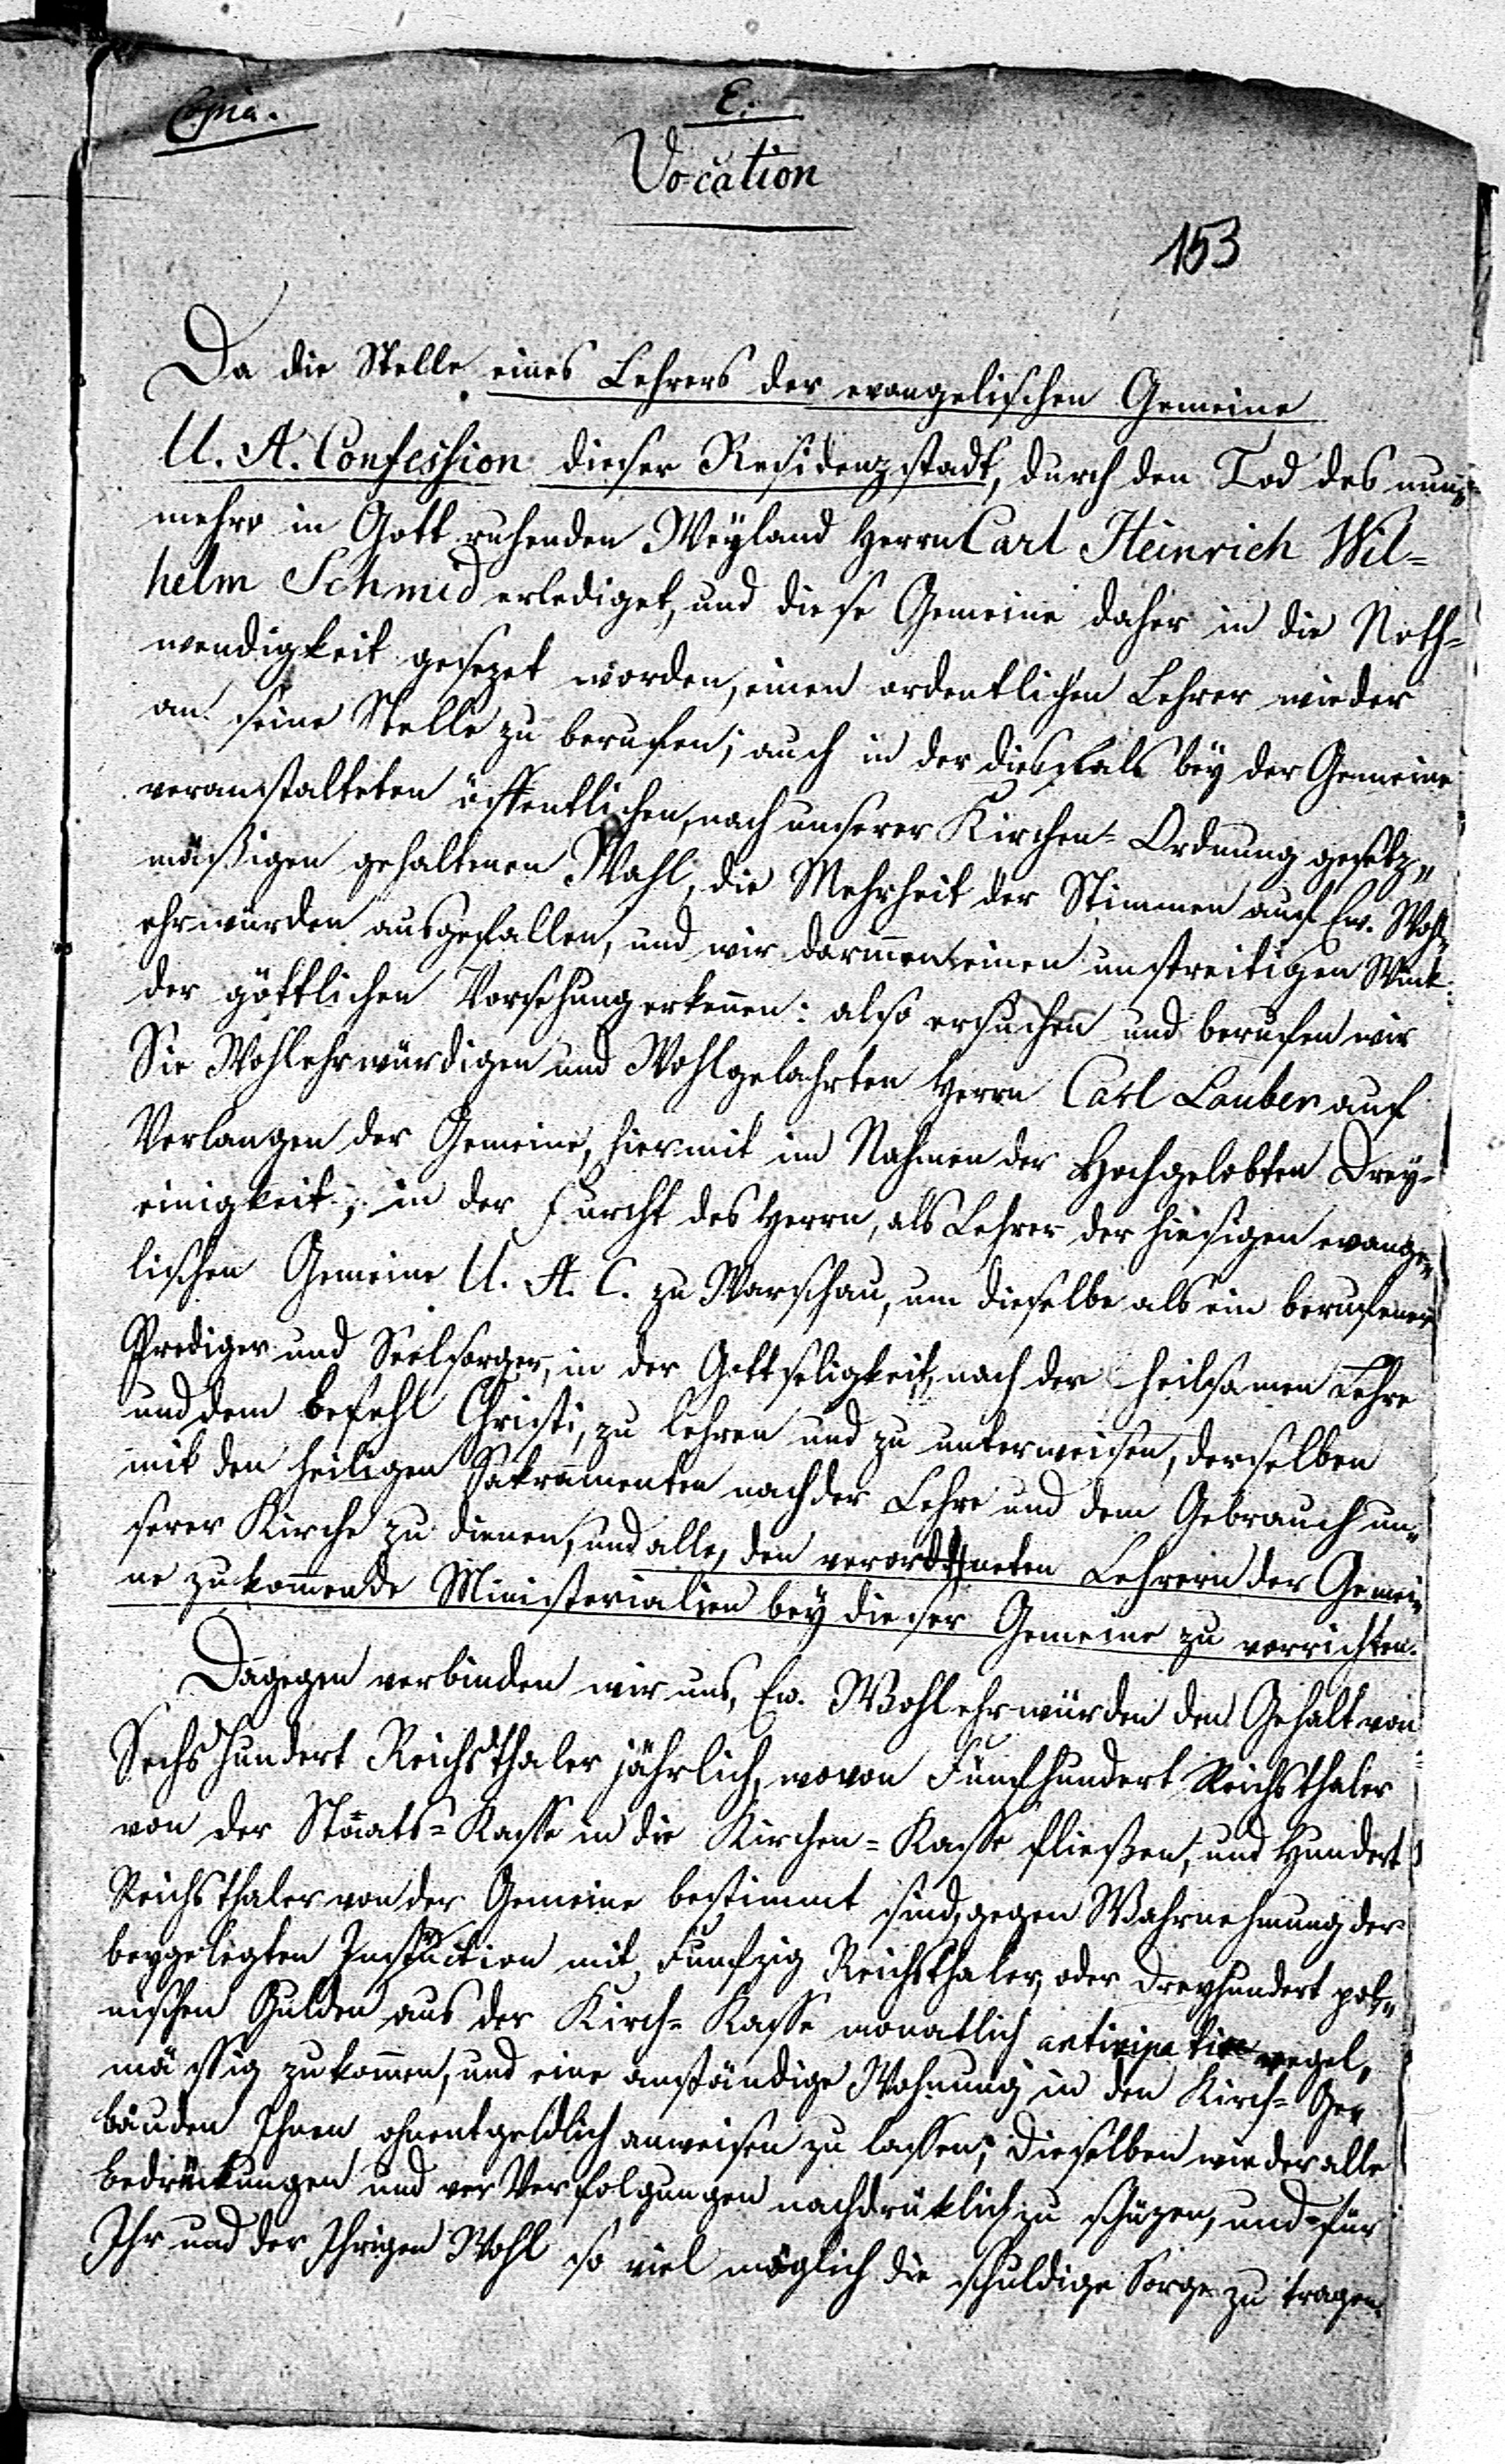 Copia.
E.
Vocation
153
Da die Stelle eines Lehrers der evangelischen Gemeine
U. A. Confession dieser Residenzstadt, durch den Tod des nun=
mehro in Gott ruhenden Weyland Herrn Carl Heinrich Wil=
helm Schmid erlediget, und diese Gemeine daher in die Noth=
wendigkeit gesezet worden, einen ordentlichen Lehrer wieder
an seine Stelle zu berufen; auch in der diesfals bey der Gemeine
veranstalteten öffentlichen, nach unserer Kirchen=Ordnung gesetz„
mäßigen gehaltenen Wahl, die Mehrheit der Stimmen auf Ew. Wohl„
ehrwürden ausgefallen, und wir darinnen einen unstreitigen Wink
der göttlichen Vorsehung erkennen: also ersuchen und berufen wir
Sie Wohlehrwürdigen und Wohlgelahrten Herrn Carl Lauber auf
Verlangen der Gemeine, hiermit im Nahmen der Hochgelobten Drey=
einigkeit, in der Furcht des Herrn, als Lehrer der hiesigen evange„
lischen Gemeine U. A. C. zu Warschau, um dieselbe als ein berufener
Prediger und Seelsorger, in der Gottseligkeit, nach der heilsamen Lehre
und dem Befehl Christi, zu lehren und zu unterweisen, derselben
mit den heiligen Sakramenten nach der Lehre und dem Gebrauch un„
serer Kirche zu dienen, und alle, den verordneten Lehrern der Gemei„
ne zukommende Ministerialien bey dieser Gemeine zu verrichten.
Dagegen verbinden wir uns, Ew. Wohlehrwürden den Gehalt von
Sechshundert Reichsthaler jährlich, wovon Fünfhundert Reichsthaler
von der Staats=Kasse in die Kirchen=Kasse fließen, und Hundert
Reichsthaler von der Gemeine bestimmt sind, gegen Wahrnehmung der
beygelegten Instruction mit Funfzig Reichsthaler, oder Dreyhundert pol„
nischen Gulden aus der Kirch=Kasse monatlich anticipative regel„
mässig zukommen, und eine anständige Wohnung in den Kirch=Ge„
bäuden Ihnen ohnentgeldlich anweisen zu lassen; Dieselben wieder alle
Bedrückungen und ver Verfolgungen nachdrüklich zu schüzen, und für
Ihr und der Ihrigen Wohl so viel möglich die schuldige Sorge zu tragen.